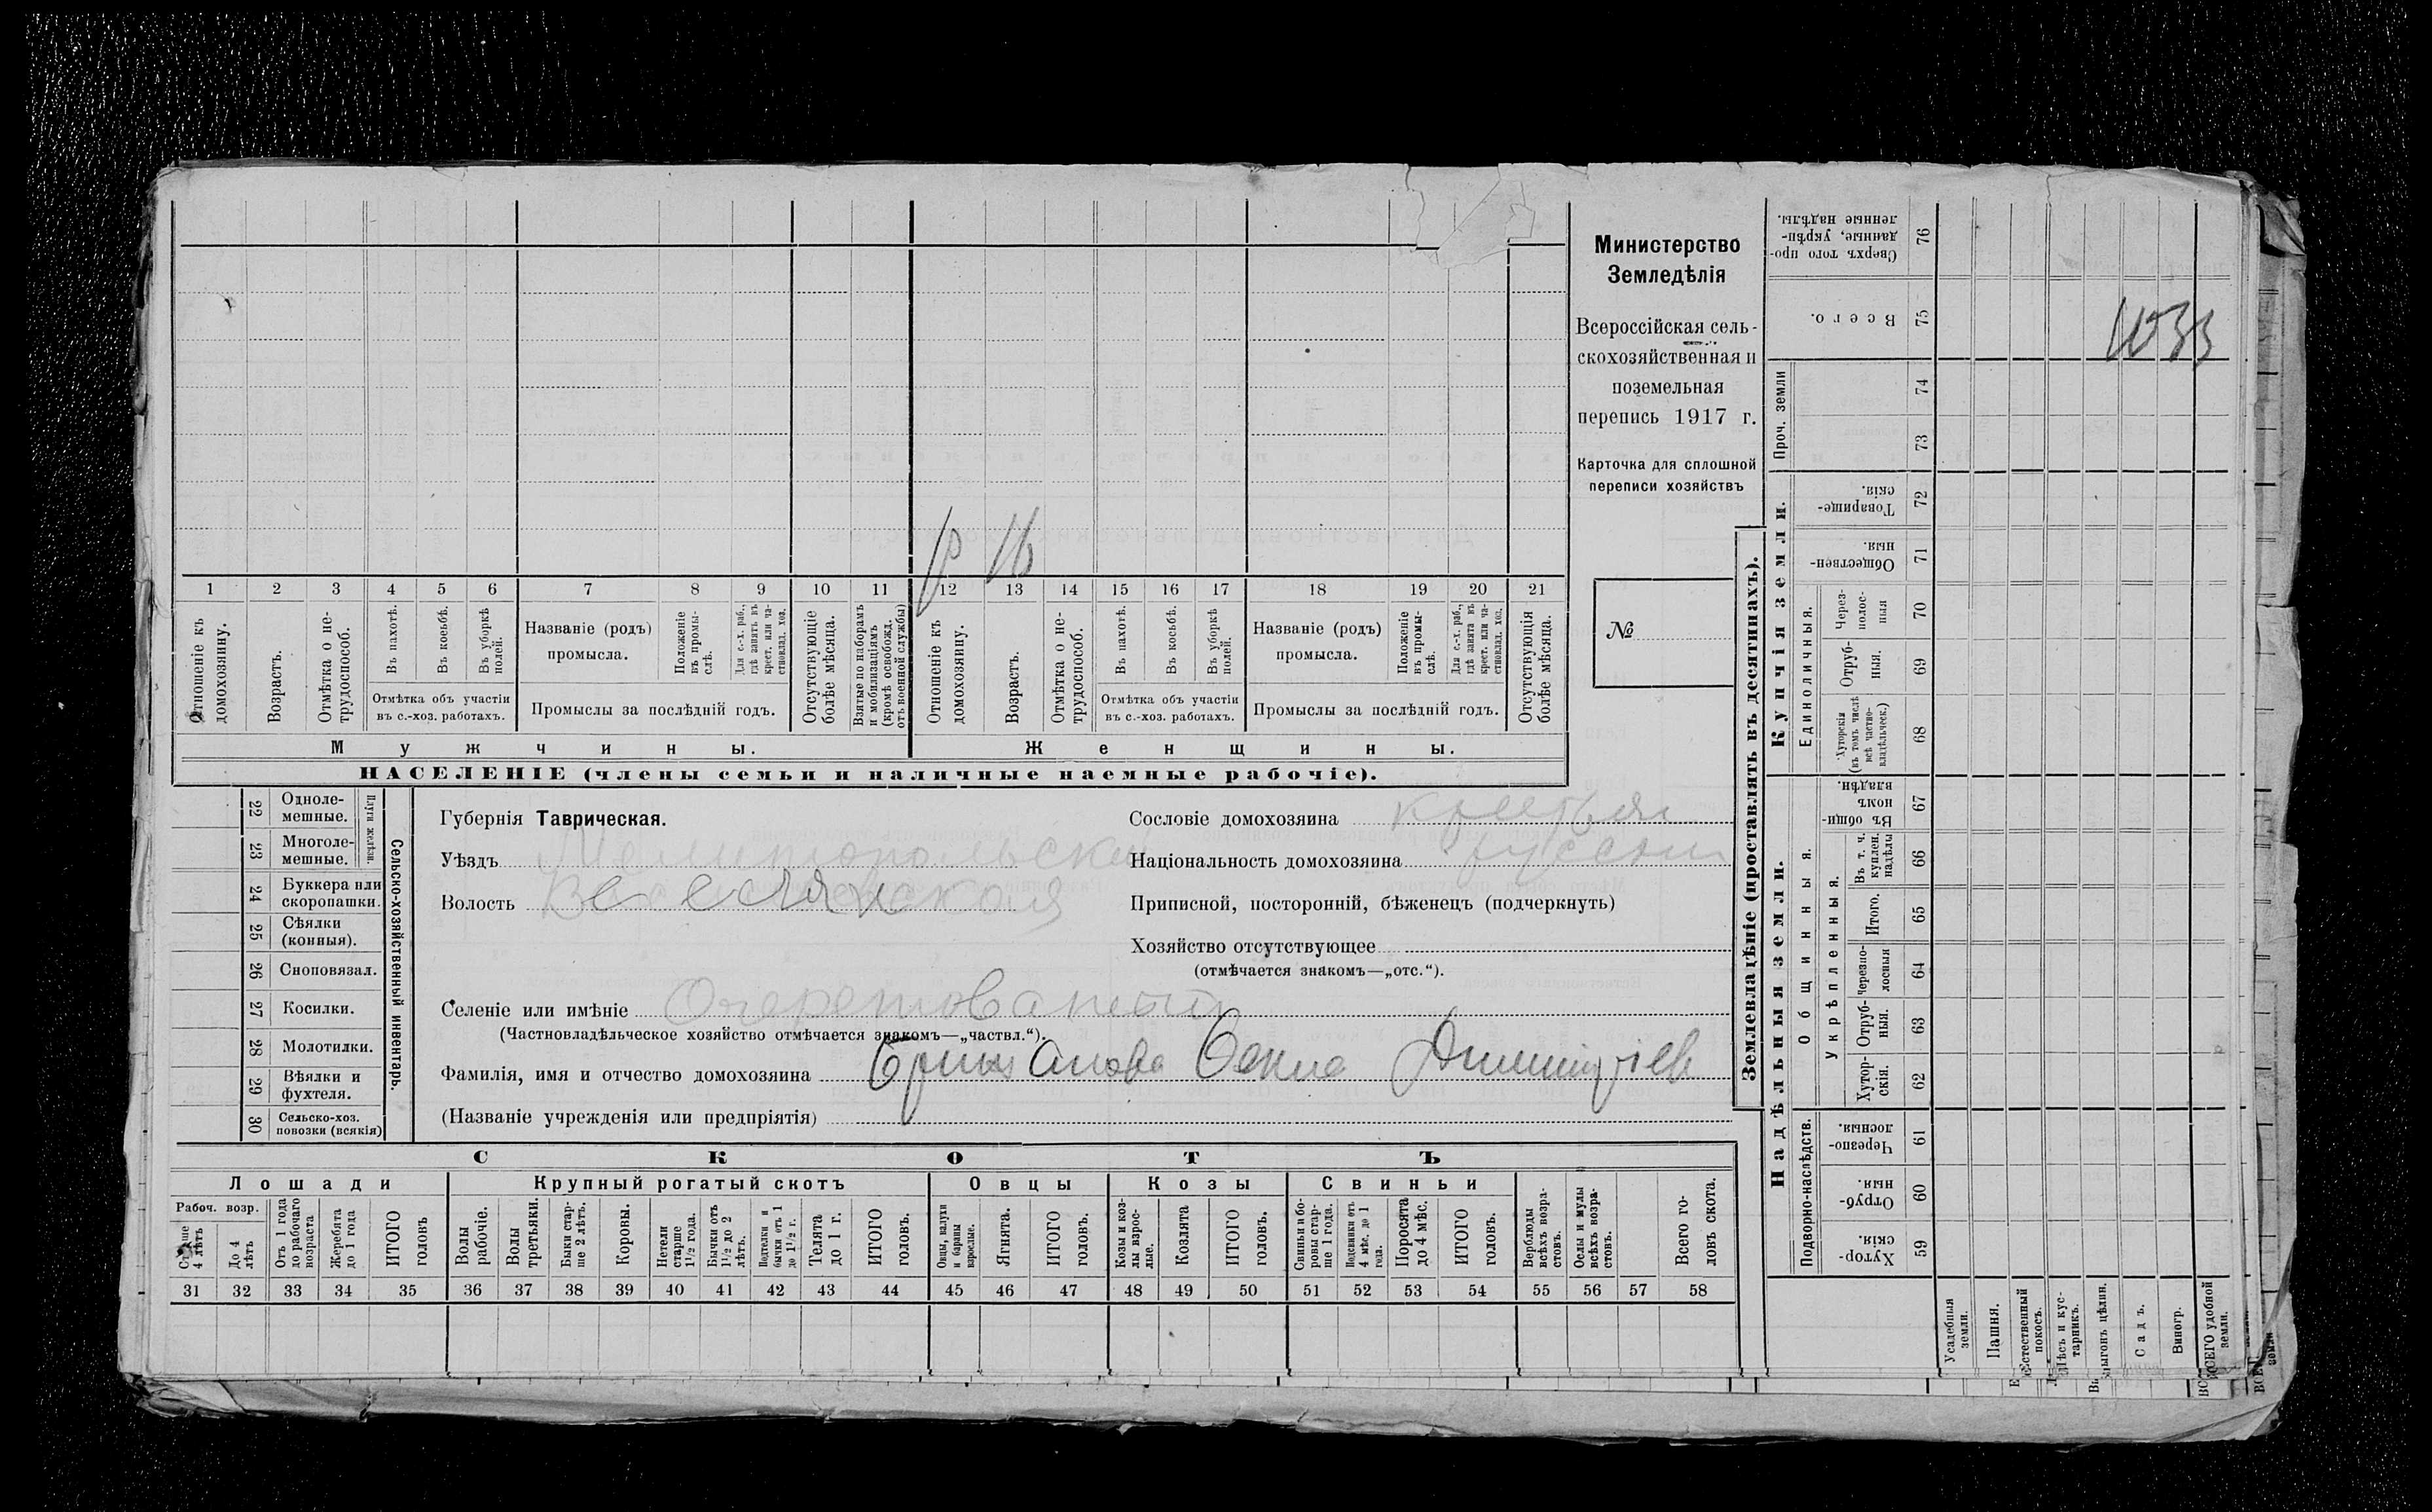 Министерство
Земледѣлія
Всероссійская сель-
скохозяйственная и
поземельная
перепись 1917 г.
Карточка для сплошной
переписи хозяйствъ
№
1 2 3 4 5 6 7 8 9 10 11 12 13 14 15 16 17 18 19 20 21
Отношеніе къ домохозяину.
Возрастъ.
Отмѣтка о не-трудоспособ.
Въ пахотѣ.
Въ косьбѣ.
Въ уборкѣ полей.
Отмѣтка объ участіи
въ с.-хоз. работахъ.
Названіе (родъ)
промысла.
Положеніе въ промы-слѣ.
Для с.-х. раб., гдѣ занятъ въ крест. или ча-стновлад. хоз.
Промыслы за послѣдній годъ.
Отсутствующіе болѣе мѣсяца.
Взятые по наборамъ и мобилизаціямъ (кромѣ освобожд. отъ военной службы)
Отношеніе къ домохозяину.
Возрастъ.
Отмѣтка о не-трудоспособ.
Въ пахотѣ.
Въ косьбѣ.
Въ уборкѣ полей.
Отмѣтка объ участіи
въ с.-хоз. работахъ.
Названіе (родъ)
промысла.
Положеніе въ промы-слѣ.
Для с.-х. раб., гдѣ занята въ крест. или ча-стновлад. хоз.
Промыслы за послѣдній годъ.
Отсутствующія болѣе мѣсяца.
Мужчины.
Женщины.
НАСЕЛЕНІЕ (члены семьи и наличные наемные рабочіе).
22 Одноле-мешные.
23 Многоле-мешные.
Плуги желѣзн.
24 Буккера или скоропашки.
25 Сѣялки (конныя).
26 Сноповязал.
27 Косилки.
28 Молотилки.
29 Вѣялки и фухтеля.
30 Сельско-хоз. повозки (всякія)
Сельско-хозяйственный инвентарь.
Губернія Таврическая.
Уѣздъ Мелитопольскій
Волость Веселянская
Селеніе или имѣніе
(Частновладѣльческое хозяйство отмѣчается знакомъ—„частвл.“).
Фамилія, имя и отчество домохозяина
(Названіе учрежденія или предпріятія)
Сословіе домохозяина крестьян
Національность домохозяина русскій
Приписной, посторонній, бѣженецъ (подчеркнуть)
Хозяйство отсутствующее
(отмѣчается знакомъ—„отс.“).
СКОТЪ
Лошади
Крупный рогатый скотъ
Овцы
Козы
Свиньи
Рабоч. возр.
Старше 4 лѣтъ
До 4 лѣтъ
Отъ 1 года до рабочаго возраста
Жеребята до 1 года
ИТОГО головъ
Волы рабочіе.
Волы третьяки.
Быки стар-ше 2 лѣтъ.
Коровы.
Нетели старше 1½ года.
Бычки отъ 1½ до 2 лѣтъ.
Подтелки и бычки отъ 1 до 1½ г.
Телята до 1 г.
ИТОГО головъ.
Овцы, валухи и бараны взрослые.
Ягнята.
ИТОГО головъ.
Козы и коз-лы взрос-лые.
Козлята
ИТОГО головъ.
Свиньи и бо-ровы стар-ше 1 года.
Подсвинки отъ 4 мѣс. до 1 года.
Поросята до 4 мѣс.
ИТОГО головъ.
Верблюды всѣхъ возра-стовъ.
Ослы и мулы всѣхъ возра-стовъ.
Всего го-ловъ скота.
31 32 33 34 35 36 37 38 39 40 41 42 43 44 45 46 47 48 49 50 51 52 53 54 55 56 57 58
Землевладѣніе (проставлять въ десятинахъ).
Купчія земли.
Надѣльныя земли.
Сверхъ того про-данные, укрѣп-ленные надѣлы. 76
Всего. 75
Проч. земли 74 73
Товарище-скія. 72
Обществен-ныя. 71
Единоличныя.
Через-полос-ныя 70
Отруб-ныя. 69
Хуторскія (въ томъ числѣ всѣ частно-владѣльческ.) 68
Общинныя.
Въ общи-номъ владѣн. 67
Укрѣпленныя.
Въ т. ч. куплен. надѣлы 66
Итого. 65
Черезпо-лосныя 64
Отруб-ныя. 63
Хутор-скія. 62
Подворно-наслѣдств.
Черезпо-лосныя. 61
Отруб-ныя. 60
Хутор-скія. 59
Усадебныя земли.
Пашня.
Естественный покосъ.
Лѣсъ и кус-тарникъ.
Выгонъ цѣлин.
Садъ.
Виногр.
ВСЕГО удобной земли.